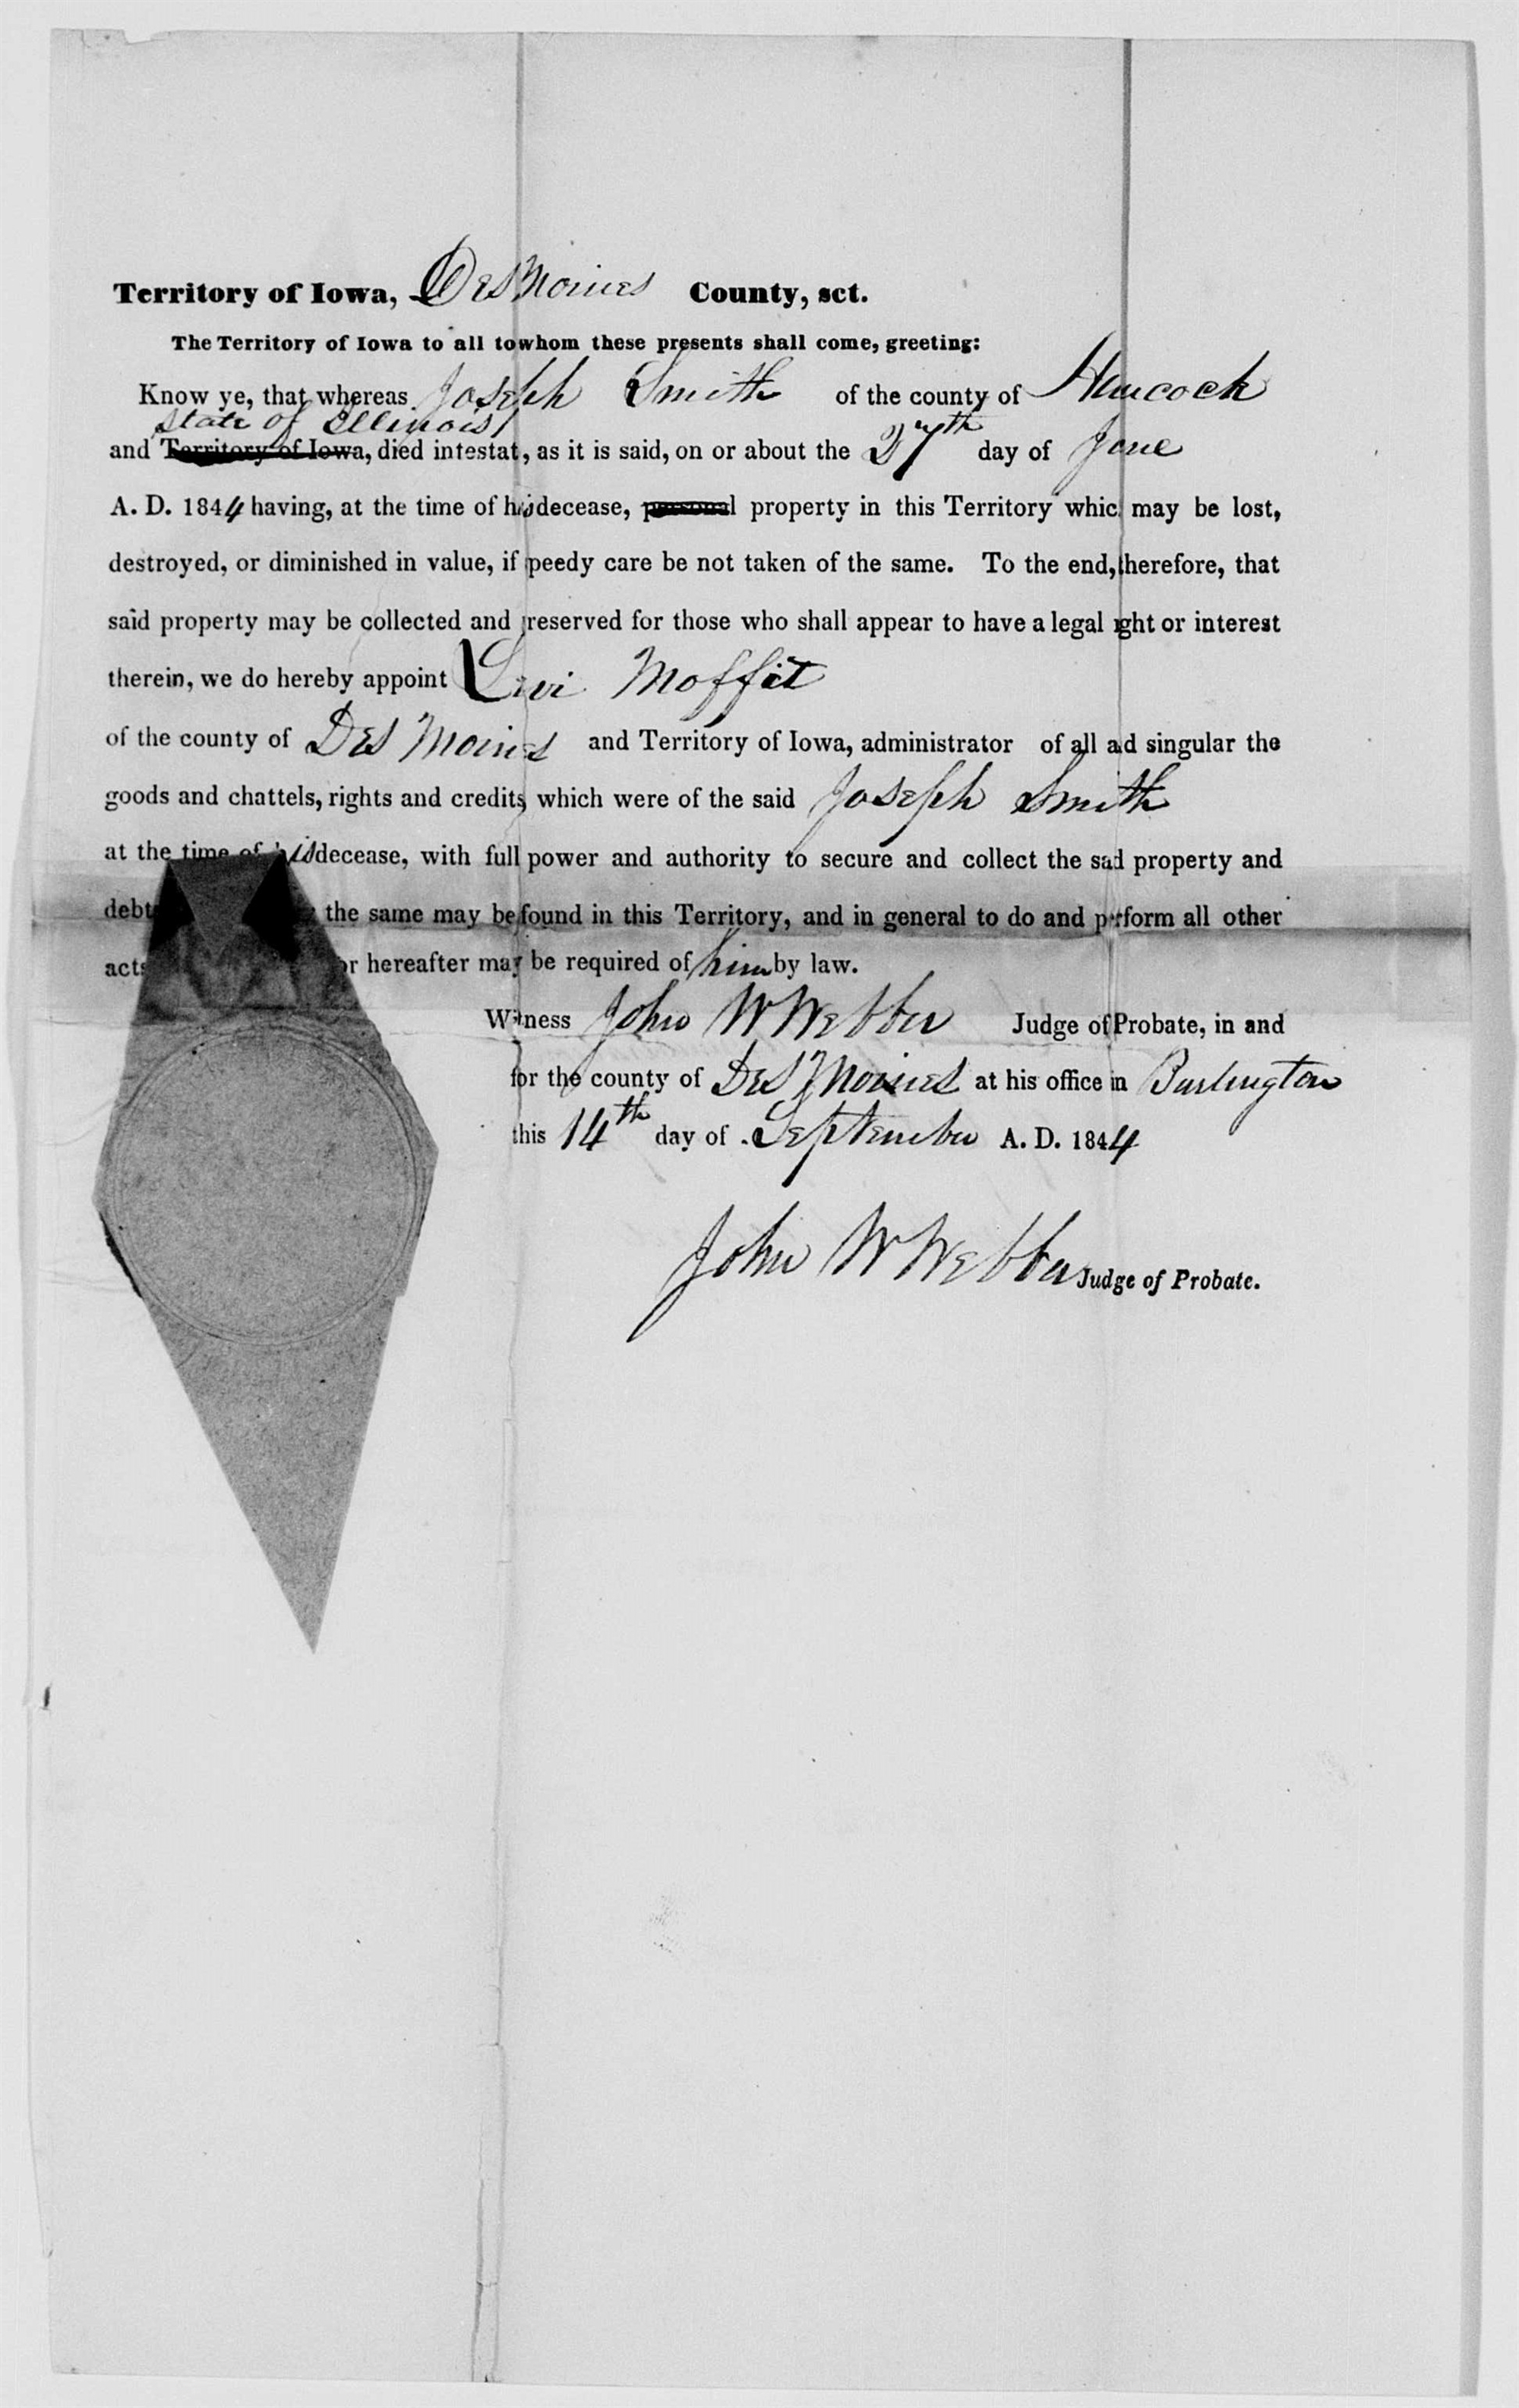 Territory of Iowa, Des Moines County, sct.
The Territory of Iowa to all to whom these presents shall come, greeting:
Know ye, that whereas Joseph Smith of the county of Hancock
state of Illinois
and Territory of Iowa, died intestat, as it is said, on or about the 27th day of June
A. D. 1844 having, at the time of his decease, personal property in this Territory whic may be lost,
destroyed, or diminished in value, if peedy care be not taken of the same. To the end, therefore, that
said property may be collected and preserved for those who shall appear to have a legal ight or interest
therein, we do hereby appoint Levi Moffit
of the county of Des Moines and Territory of Iowa, administrator of all ad singular the
goods and chattels, rights and credits, which were of the said Joseph Smith
at the time of his decease, with full power and authority to secure and collect the said property and
debt the same may be found in this Territory, and in general to do and perform all other
acts or hereafter may be required of him by law.
Witness John W Webber Judge of Probate, in and
for the county of Des Moines at his office in Burlington
this 14th day of September A. D. 1844
John W Webber Judge of Probate.